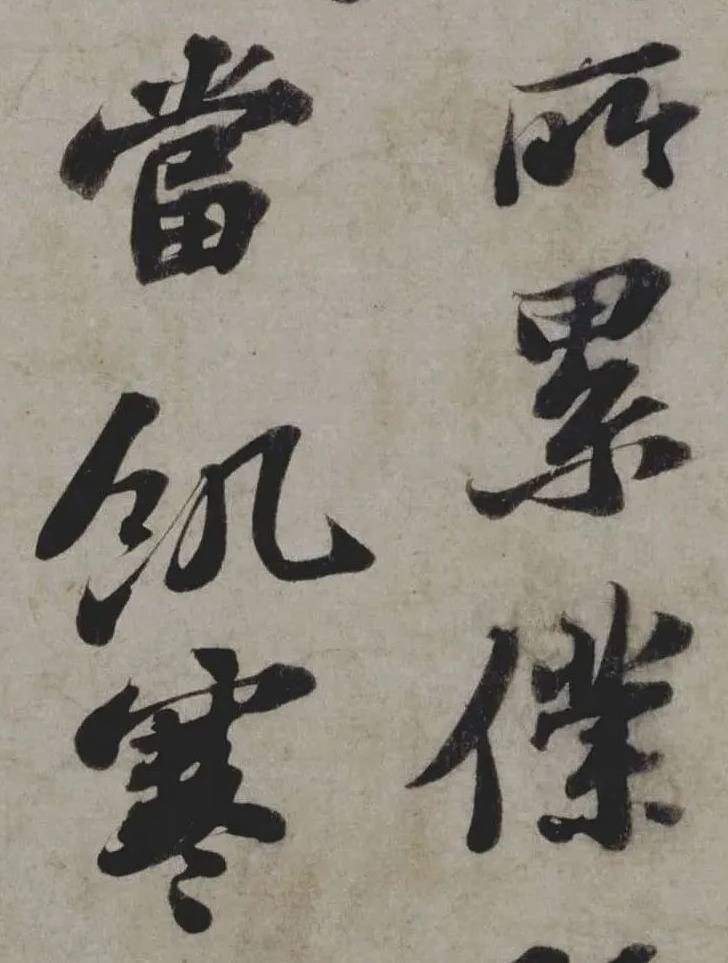 所累僕
當飢寒